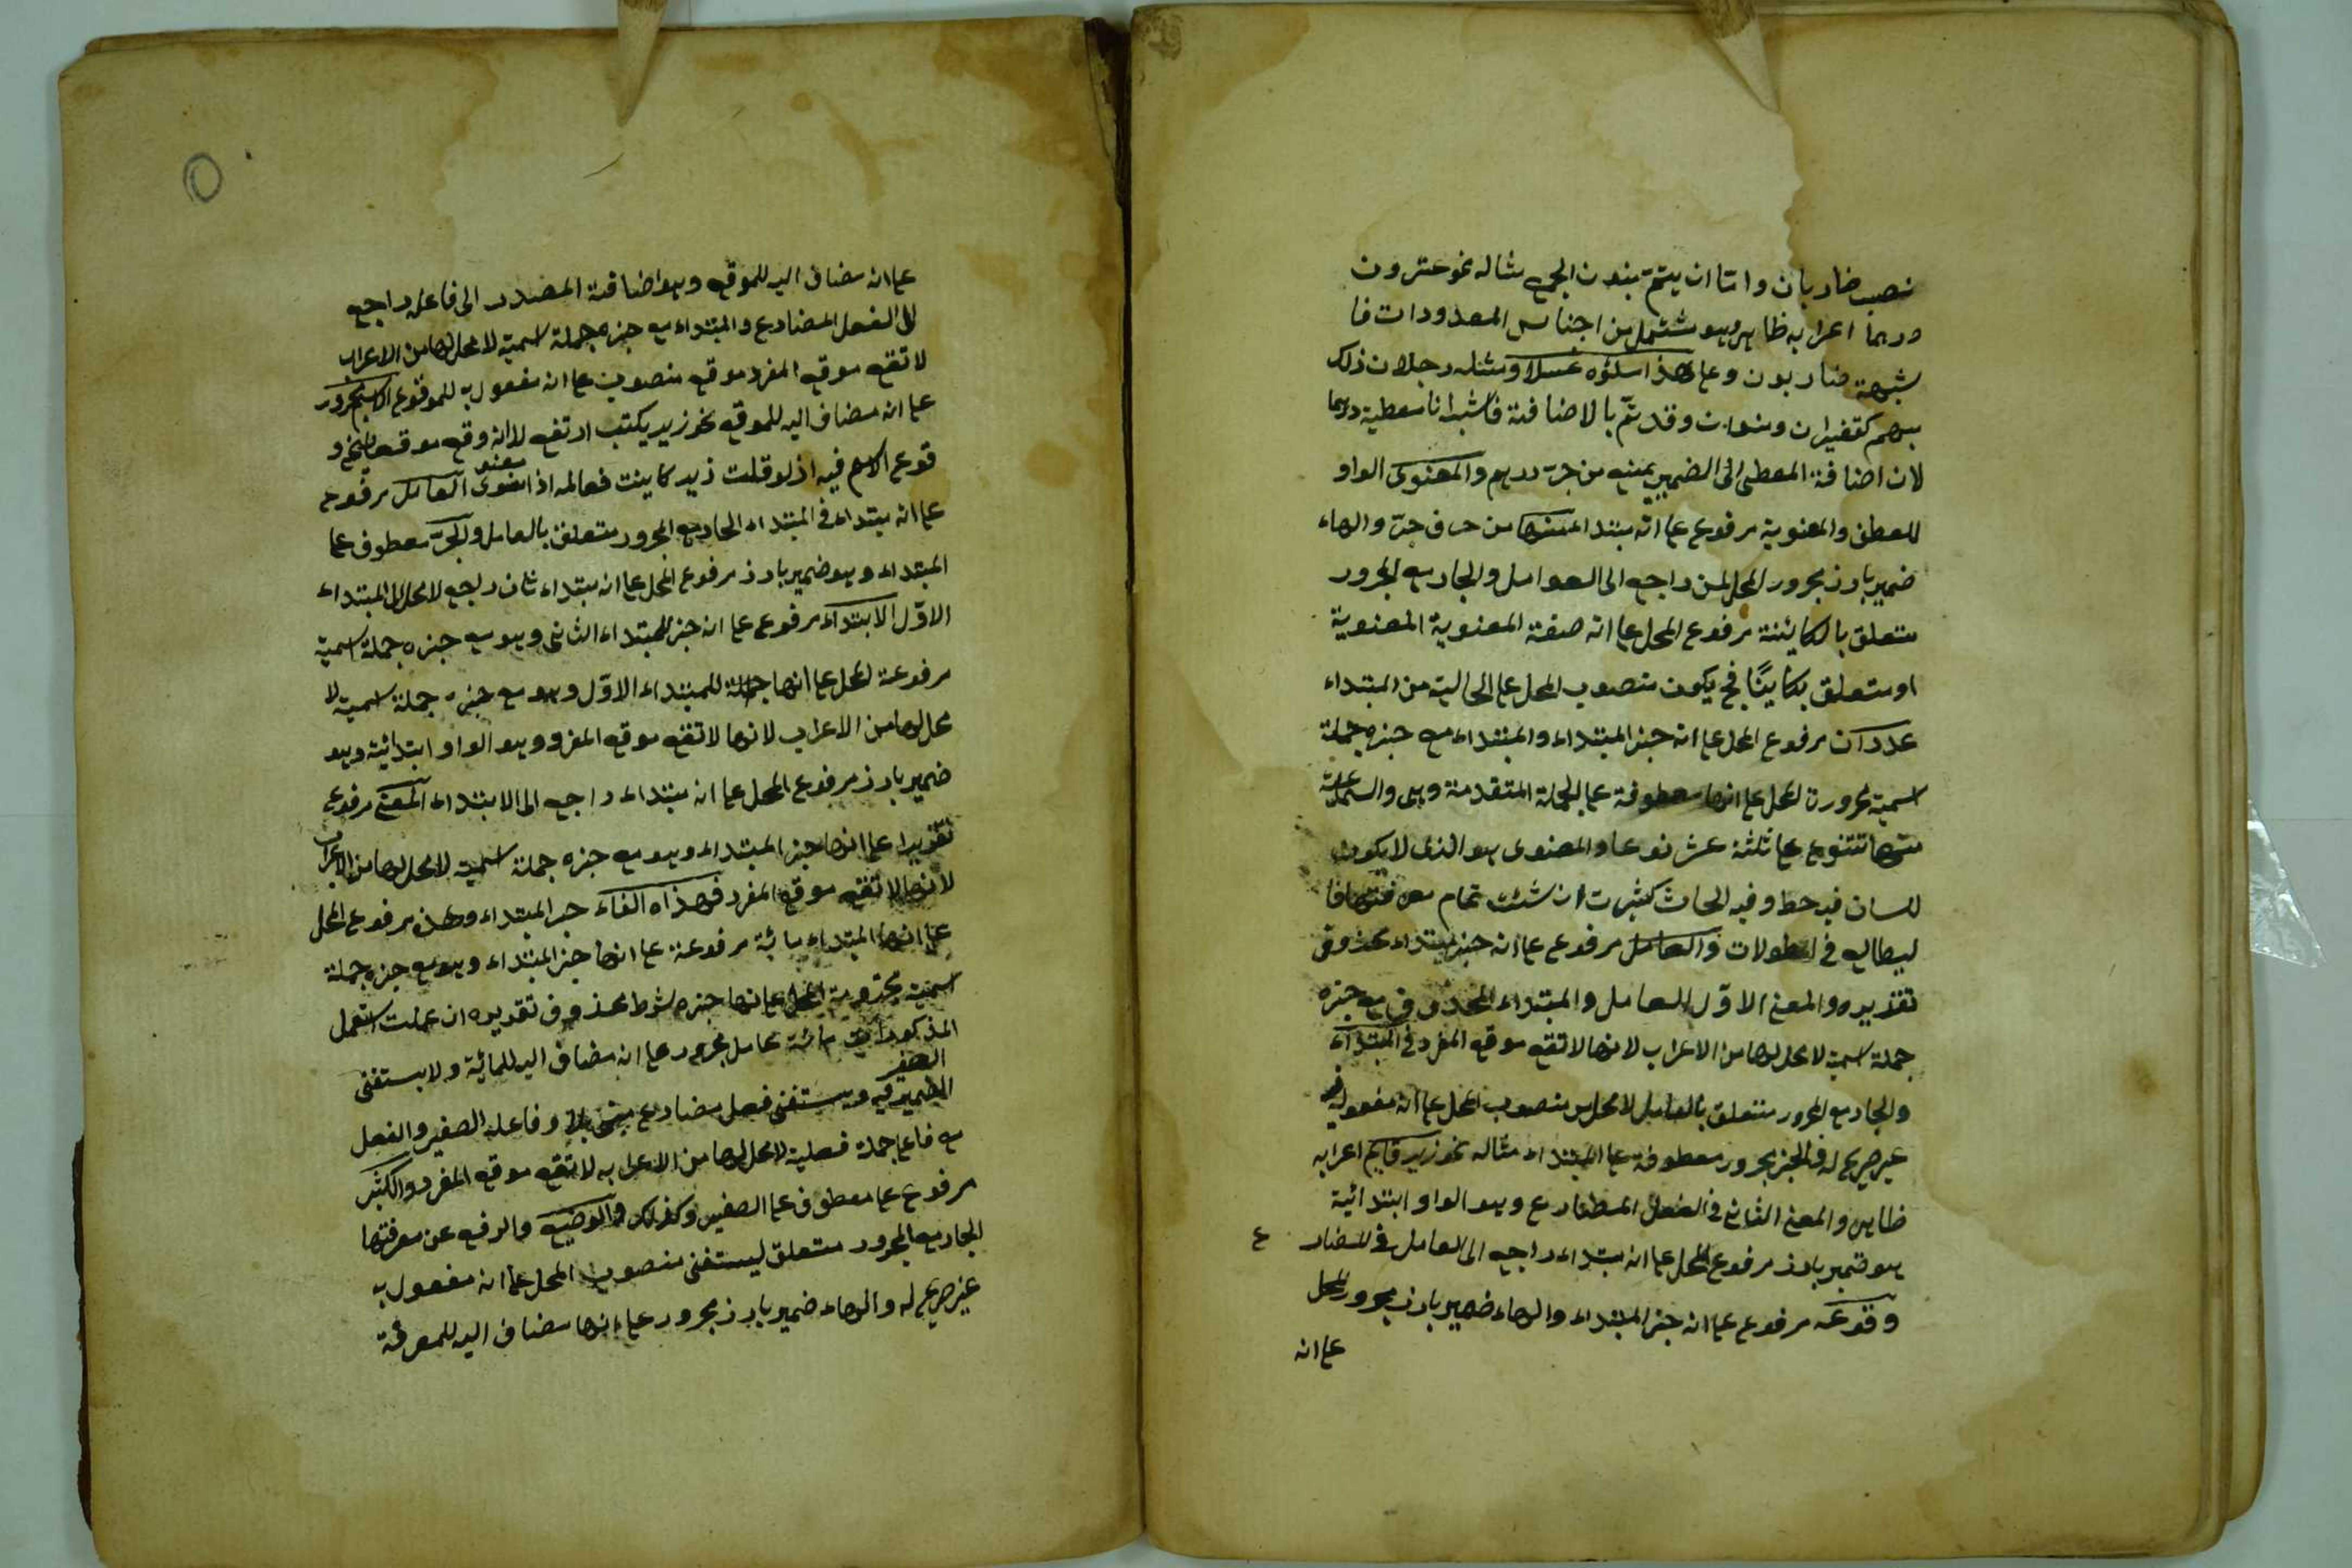 نصب ضاربان واما ان يتم بنون الجمع مثاله نحو عشرون
درهما اعرابه ظاهر وهو مشتمل من اجناس المعدودات فا
شبهه ضاربون وعلى هذا ملؤه عسلا ومثله رجلان ذلك
مبهم كقفيزان ومنوان وقد تم بالاضافة فاشبه انا معطيه درهما
لان اضافة المعطى الى الضمير يمنع من جر درهم والمعنوى الواو
للعطف والمعنوية مرفوع على انه مبتداء منها من حرف جر والهاء
ضمير بارز مجرور المحل لمن راجع الى العوامل والجار مع المجرور
متعلق بالكائنة مرفوع المحل على انه صفة المعنوية المعنوية
او متعلق بكاينا فح يكون منصوب المحل على الحالية من المبتداء
عددان مرفوع المحل على انه خبر المبتداء والمبتداء مع خبره جملة
اسمية مجرورة المحل على انها معطوفة على الجملة المتقدمة وهى والسماعية
منها تتنوع على ثلثة عشر نوعا والمعنوى هو الذى لا يكون
للسان فيه حظ وفيه ان شئت تمام معرفتها فا
ليطالع فى المطولات والعامل مرفوع على انه خبر مبتداء محذوف
تقديره والمعنى الاول العامل والمبتداء المحذوف مع خبره
جملة اسمية لا محل لها من الاعراب لانها لا تقع موقع المفرد فى المبتداء
والجار مع المجرور متعلق بالعامل لا محل منصوب المحل على انه مفعول به
غير صريح له والخبر مجرور معطوفة على المبتداء مثاله نحو زيد قايم اعرابه
ظاهر والمعنى الثانى فى الفعل المضارع وهو الواو ابتدائية
هو ضمير بارز مرفوع المحل على انه مبتداء راجع الى العامل فى المضار ع
وقوعه مرفوع على انه خبر المبتداء والهاء ضمير بارز مجرور المحل
على انه
على انه مضاف اليه للموقع وهو اضافة المصدر الى فاعله راجع
الى الفعل المضارع والمبتداء مع خبره جملة اسمية لا محل لها من الاعراب
لا تقع موقع المفرد موقع منصوب على انه مفعول به للموقوع الاسم مجرور
على انه مضاف اليه للموقع نحو زيد يكتب ارتفع لانه وقع موقع و
قوع الاسم فيه اذ لو قلت زيد كاينت فعالمه اذا معنوى العامل مرفوع
على انه مبتداء فى المبتداء الجار مع المجرور متعلق بالعامل والخبر معطوف على
المبتداء وهو ضمير بارز مرفوع المحل على انه مبتداء ثان راجع لا محل الى المبتداء
الاول الابتداء مرفوع على انه خبر المبتداء الثانى وهو مع خبره جملة اسمية
مرفوعة المحل على انها جملة للمبتداء الاول وهو مع خبره جملة اسمية لا
محل لها من الاعراب لانها لا تقع موقع المفرد وهو الواو ابتدائية وهو
ضمير بارز مرفوع المحل على انه مبتداء راجع الى الابتداء المعنى مرفوع
تقديرا على انها خبر المبتداء وهو مع خبره جملة اسمية لا محل لها من الاعراب
لانها لا تقع موقع المفرد فهذه الفاء المبتداء وهذه مرفوع المحل
على انها المبتداء مائة مرفوعة على انها خبر المبتداء وهو مع خبره جملة
اسمية مجزومة المحل على انها جزاء لشرط محذوف تقديره ان عملت
المذكورات مائة عامل مجرور على انه مضاف اليه للمائة ولا يستغنى
الصغير
الضمير فيه ويستغنى فعل مضارع منفى بلا وفاعله الصغير والفعل
مع فاعله جملة فعلية لا محل لها من الاعراب لا تقع موقع المفرد والكبير
مرفوع على معطوف على الصغير وكذلك والوضيع والرفيع عن معرفتها
الجار مع المجرور متعلق ليستغنى منصوب المحل على انه مفعول به
غير صريح له والهاء ضمير بارز مجرور على انها مضاف اليه للمعرفة